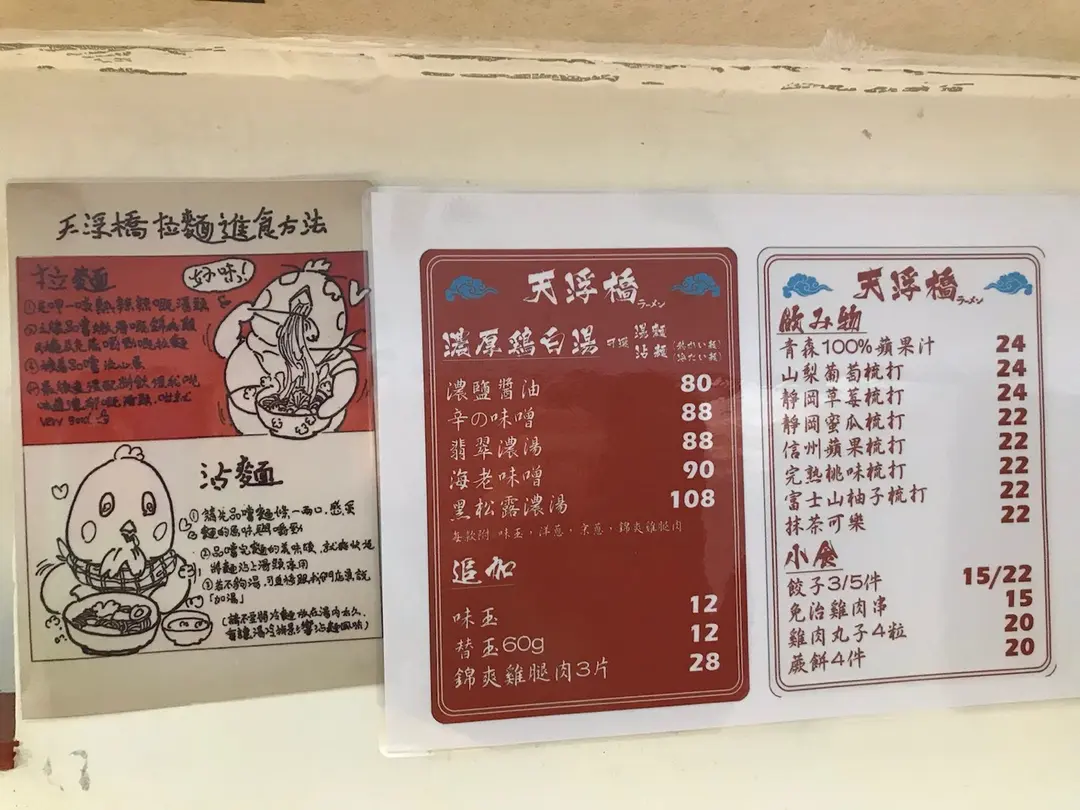 天浮橋拉麵進食方法
拉麵
好味!
very good
沾麵
①請先品嚐麵條一兩口,感受
麵的風味與嚼勁
②品嚐完麵的美味後,就能快啲
將麵沾上湯頭享用
③若不夠湯,可並請跟我們店員說
「加湯」
(請不要將冷麵放在湯內太久,
會讓湯冷掉影響沾麵風味)
天浮橋
ラーメン
濃厚鶏白湯 可選 湯麵
沾麵
濃鹽醬油 80
辛の味噌 88
翡翠濃湯 88
海老味噌 90
黑松露濃湯 108
每款附 味玉,洋蔥,京蔥,錦爽雞腿肉
追加
味玉 12
替玉60g 12
錦爽雞腿肉3片 28
天浮橋
ラーメン
飲み物
青森100%蘋果汁 24
山梨葡萄梳打 24
靜岡草莓梳打 24
靜岡蜜瓜梳打 22
信州蘋果梳打 22
完熟桃味梳打 22
富士山柚子梳打 22
抹茶可樂 22
小食
餃子3/5件 15/22
免治雞肉串 15
雞肉丸子4粒 20
蕨餅4件 20